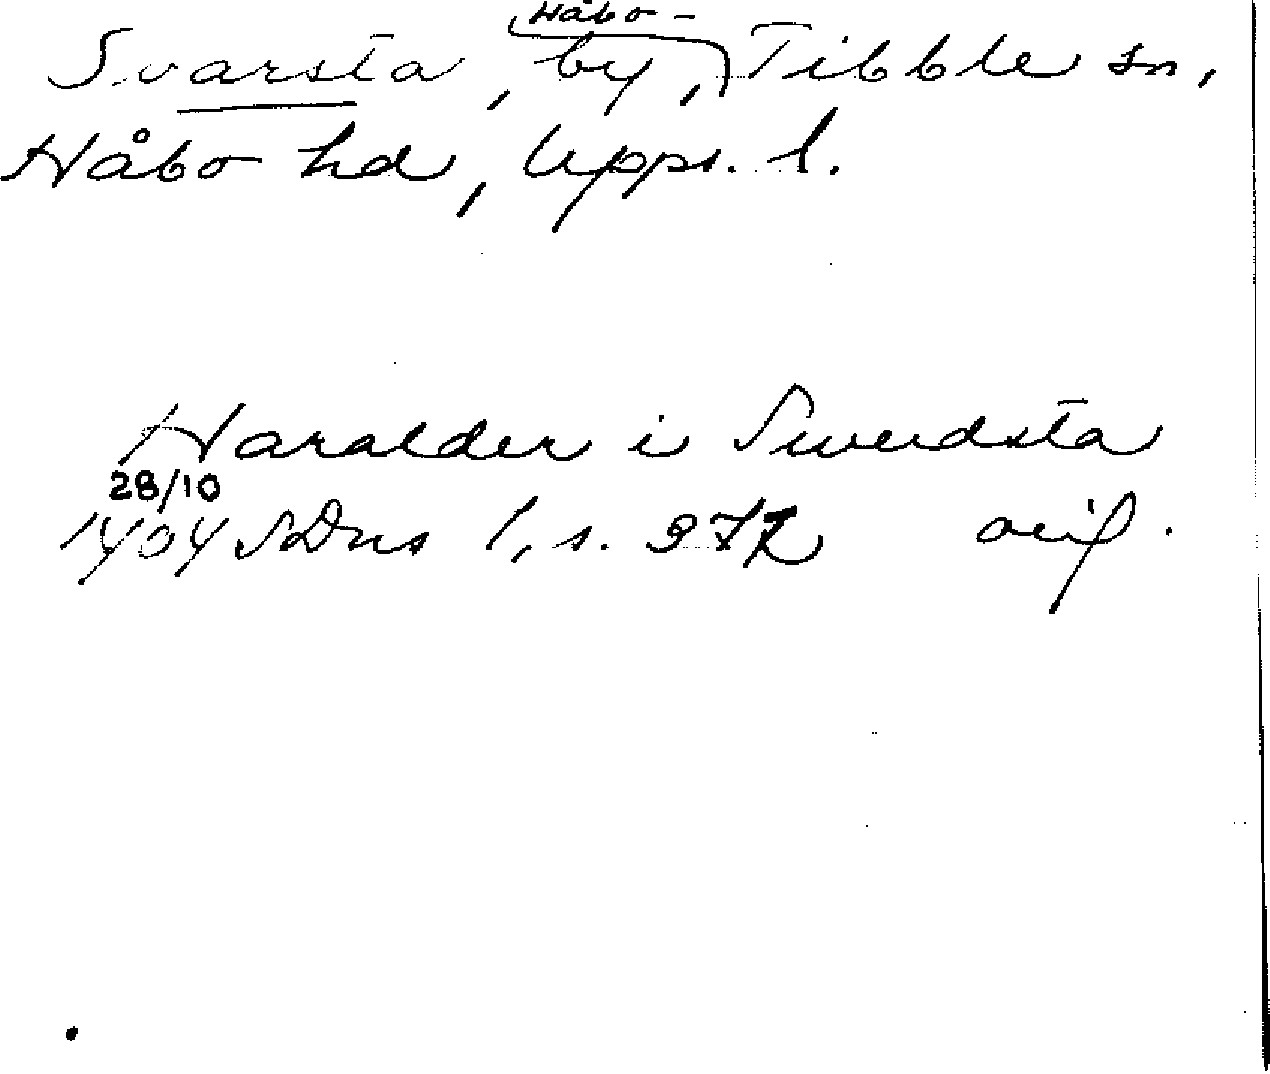 Håbo-
Svarsta, by, Tibble sn,
Håbo hd, Upps. l.
Haralder i Swerdsta
28/10
1404 SDns 1, s. 277 orig.